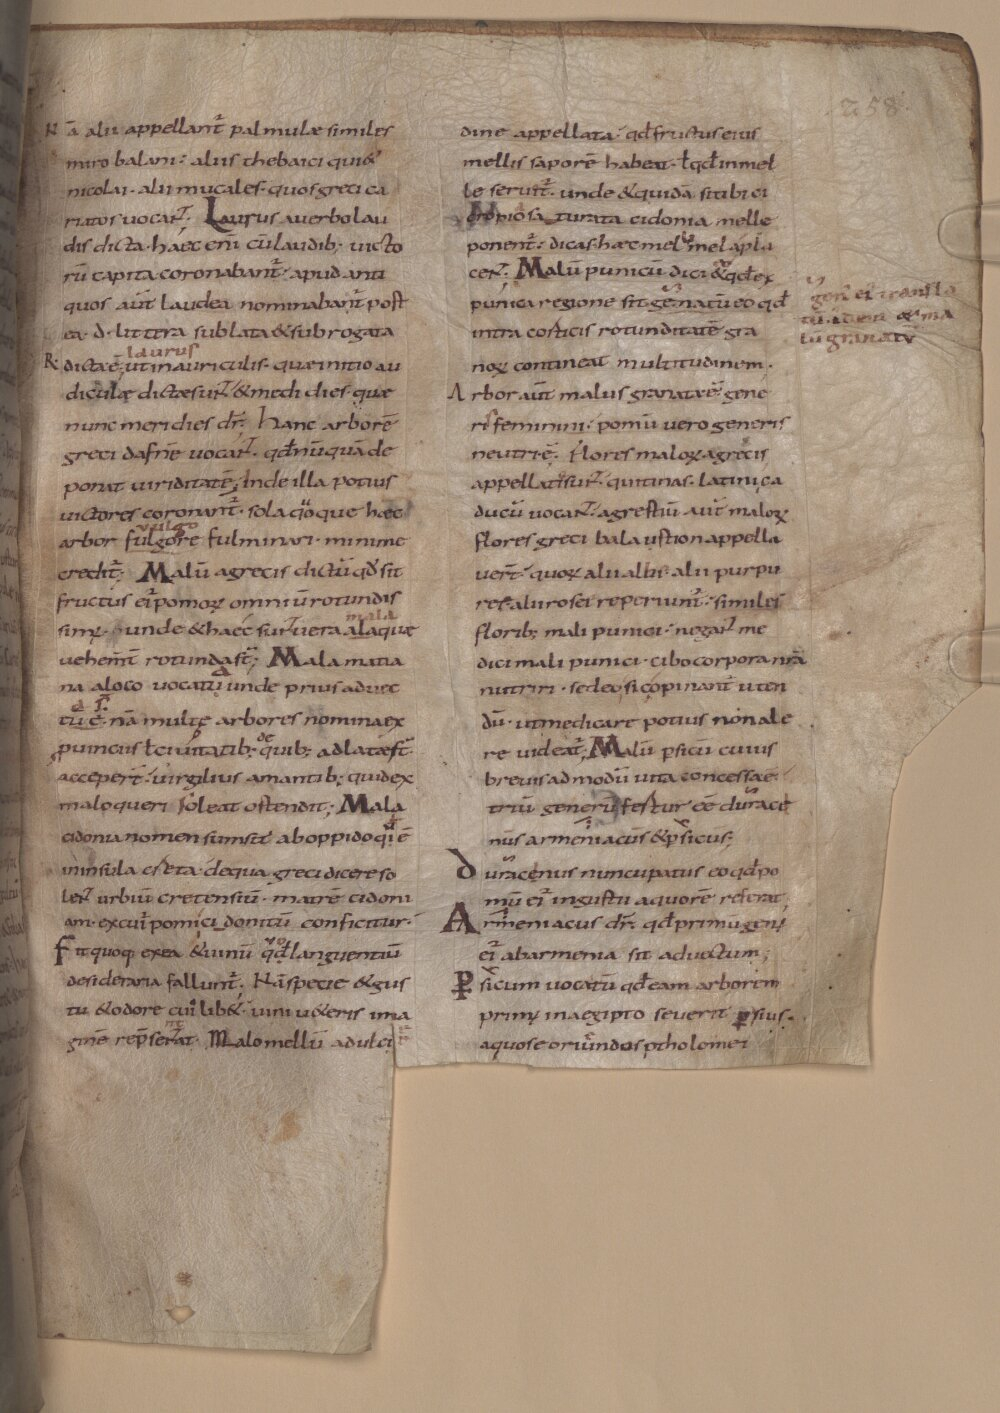 258
Nā alii appellant᷑ palmulæ similes
miro balani· aliis thebaici qui&
nicolai· alii mucales· quos greci ca
riotos uocant· Laurus a uerbo lau
dis dicta· haec eni cū laudib; uicto
rū capita coronabant᷑· apud anti
quos aūt laudea nominabant᷑ post
ea· d· littera sublata & subrogata
R
laurus
dicta ē· ut in auriculis· quae initio au
diculæ dictæ sunt & medi dies· quæ
nunc meridies dr̄· Hanc arborē
greci dafnē uocant· qđ nūquā de
ponat uiriditatē; Inde illa potius
uictores coronant᷑· sola quoque haec
uulgo
arbor fulgore fulminari· minime
credit᷑; Malū a grecis dictū qđ sit
fructus ei᷑ pomoꝝ omniū rotundis
mala
simꝰ· unde & haec sunt uera alaquæ
uehemt̄ rotunda st̄; Mala matia
na a loco uocata unde prius aduec
tū ē· nā multe arbores nomina ex
puinciis ł ciuitatib; de quib; adlatæ st̄·
acceper̄t· uirgilius amantib; quid ex
malo queri soleat ostendit; Mala
cidonia nomen sumsit ab oppido qđ ē
in insula creta· de qua greci dicere so
lent urbiū cretensiū· matrē cidoni
am· ex cui᷑ pomi ci donitū conficitur·
Fit quoq; ex ea & uinū qđ languentiū
desideraria fallunt᷑· Nā specie & gus
tu & odore cui᷑ lib&· uini ueteris ima
ginē rep̄sentat· Malomellū a dulci
dine appellata· qđ fructus eius
mellis saporē habeat· ł qđ in mel
le seruent᷑· unde & quidā si tibi ci
copiosa turata cidonia melle
ponent᷑· dicas· haec mel mel a pla
cent· Malū punicū dici & qđ ex
punica regione sit genus natū eo qđ
intra costicis rotunditatē gra
noꝝ contineat multitudinem·
Arbor aūt malus granata ē gene
ris feminini· pomū uero generis
neutri ē· Flores maloꝝ a grecis
appellati sunt· quitinas· latini ca
ducū uocant· agrestiū aūt maloꝝ
flores greci balaustion appella
uer̄t· quoꝝ alii albi· alii purpu
rei· alii rosei reperiunt᷑· similes
florib; mali punici· negant me
dici mali punici· cibo corpora nr̄a
nutriri· sed eo si copinant᷑ uten
dū· ut medicare potius non ale
re uideat᷑; Malū ꝑsicū cuius
breuis admodū uita concessa ē·
triū generū festur eē duracē
nus armeniacus & ꝑsicus;
Duracenus nuncupatus eo qđ po
mū ei᷑ in gustu aquorē referat
Armeniacus dr̄· qđ primū gen᷒
ei᷑ ab armenia sit aduectum;
Ꝑsicum uocatū qđ eam arborem
primꝰ in aegipto seuerit ꝑsius·
a quo se oriundos ptholomei
tū
lū granatū